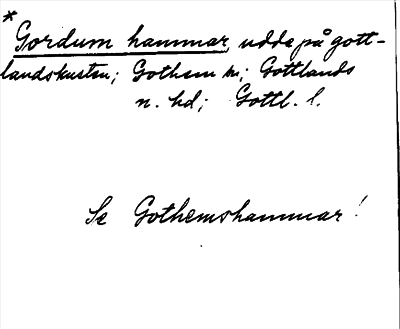 *
Gordum hammar, udde på gott-
landskusten; Gothem sn; Gottlands
n. hd; Gottl. l.
Se Gothemshammar!